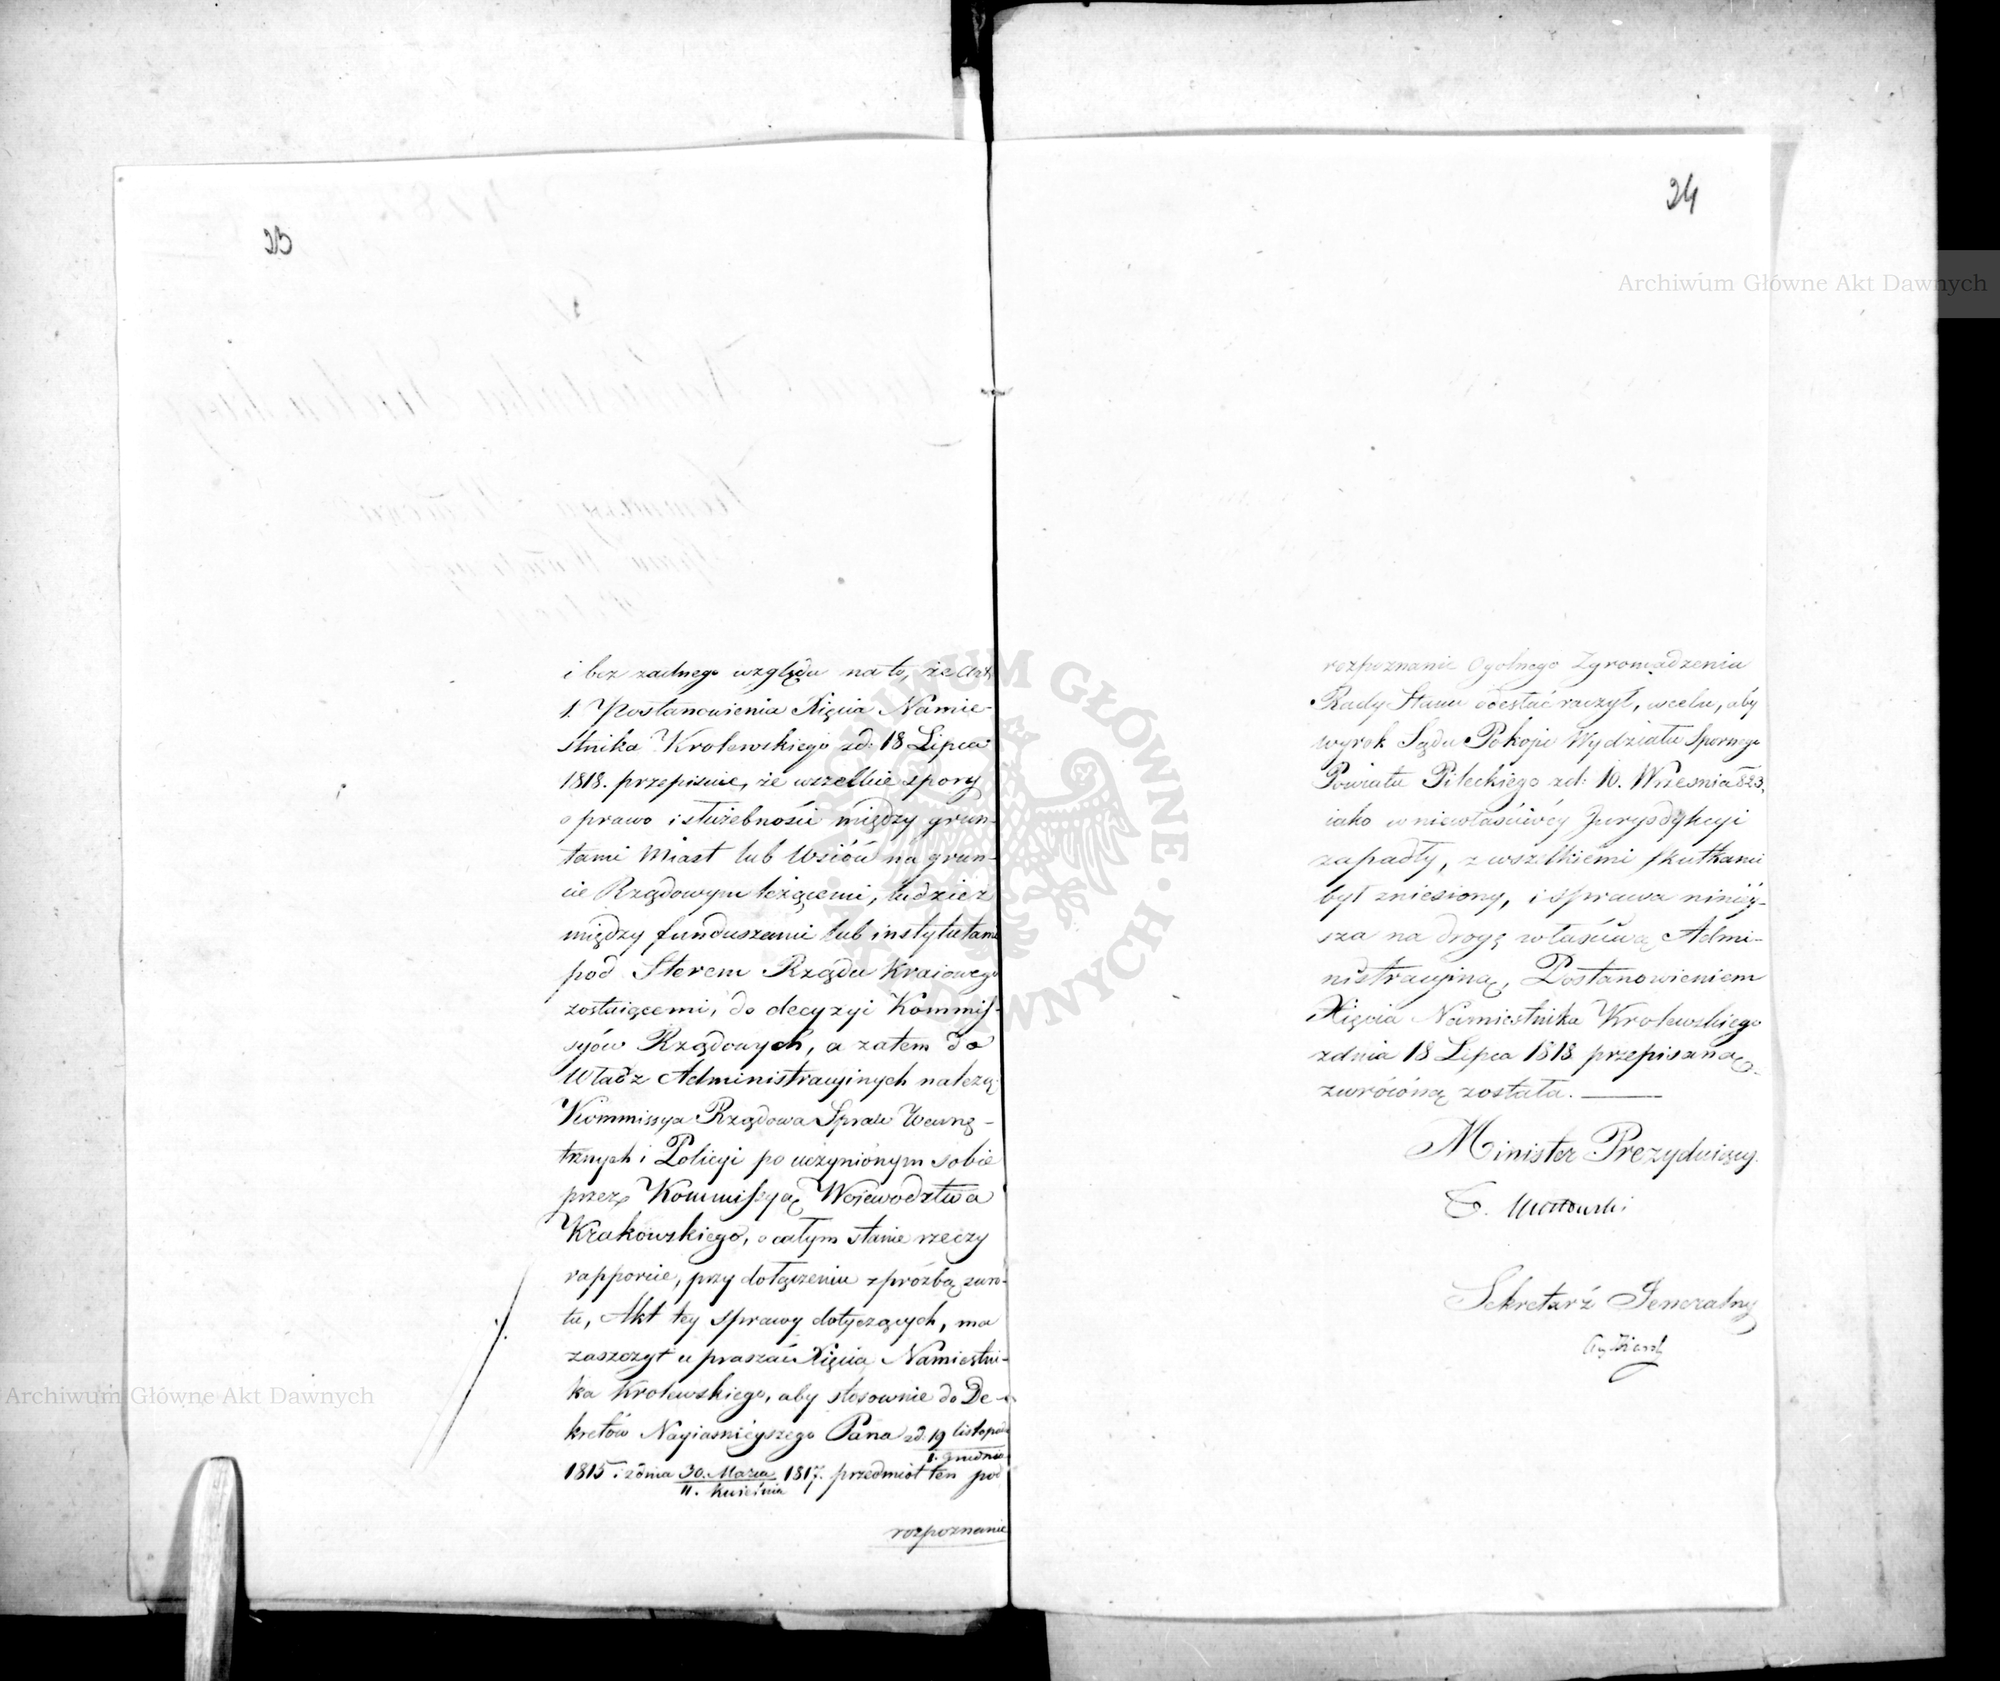 23
i bez żadnego względu na to, że Art.
1. Postanowienia Xięcia Namie-
stnika Krolewskiego zd: 18 Lipca
1818. przepisuie, że wszelkie spory
o prawo i służebności między grun-
tami Miast lub Wsiów na grun-
cie Rządowym leżącemi, tudzież
między funduszami lub instytutami
pod Sterem Rządu Kraiowego
zostaiącemi, do decyzyi Kommis-
syów Rządowych, a zatem do
Władz Administracyinych należą
Kommissya Rządowa Spraw Wewnę-
trznych i Policyi po uczynionym sobie
przez Kommissyą Woiewodztwa
Krakowskiego, o całym stanie rzeczy
rapporcie, przy dołączeniu z prożbą zwro-
tu, Akt tey sprawy dotyczących, ma
zaszczyt upraszać Xięcia Namiestni-
ka Krolewskiego, aby stosownie do De-
kretów Nayiaśnieyszego Pana zd. 19 listopada
1. Grudnia
1815 i zdnia 30. Marca 1817. przedmiot ten pod
11. Kwietnia
rozpoznanie
24
rozpoznanie Ogolnego Zgromadzenia
Rady Stanu odesłać raczył, w celu, aby
wyrok Sądu Pokoju Wydziału Spornego
Powiatu Pileckiego zd: 10. Wrzesnia 823,
iako w niewłaściwéy Jurysdykcyi
zapadły, z wszelkiemi skutkami
był zniesiony, i sprawa ninięy-
sza na drogę właściwą Admi-
nistracyiną, Postanowieniem
Xięcia Namiestnika Krolewskiego
zdnia 18 Lipca 1818 przepisaną
zwróconą została.
Minister Prezyduiący
T. Mostowski
Sekretarz Generalny
Archiwum Główne Akt Dawnych
Archiwum Główne Akt Dawnych
ARCHIWUM GŁÓWNE AKT DAWNYCH